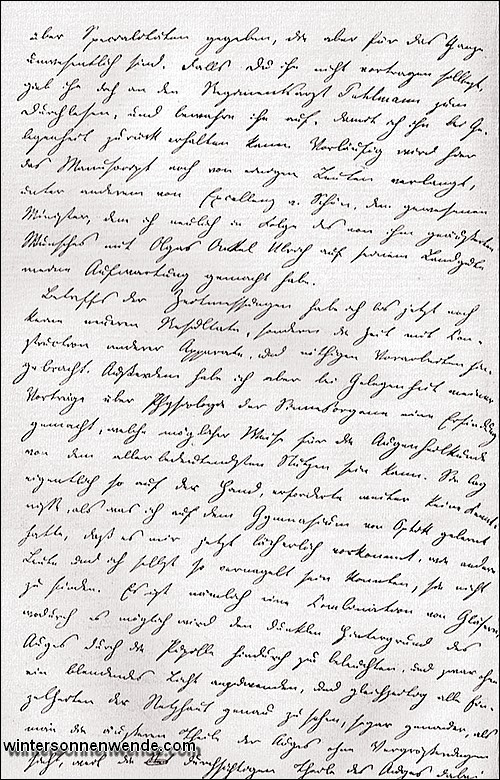 über Specialitäten gegeben, die aber für das Ganze
unwesentlich sind. Falls Du ihn nicht vortragen solltest,
gieb ihn doch an den Regimentsarzt Puhlmann zum
Durchlesen, und bewahre ihn auf, damit ich ihn bei Ge-
legenheit zurück erhalten kann. Vorläufig wird hier
das Manuscript noch von einigen Leuten verlangt,
unter anderem von Excellenz v. Schön, dem gewesenen
Minister, dem ich neulich in Folge des von ihm geäusserten
Wunsches mit Olgas Onkel Ulrich auf seinem Landgute
meine Aufwartung gemacht habe.
Betreffs der Zeitmessungen habe ich bis jetzt noch
keine neueren Resultate, sondern die Zeit mit Con-
struction anderer Apparate, und nöthigen Vorarbeiten hin-
gebracht. Außerdem habe ich aber bei Gelegenheit meiner
Vorträge über Physiologie der Sinnesorgane eine Erfindung
gemacht, welche möglicher Weise für die Augenheilkunde
von dem allerbedeutendsten Nutzen sein kann. Sie lag
eigentlich so auf der Hand, erforderte weiter keine Kennt-
nisse, als was ich auf dem Gymnasium von Optik gelernt
hatte, daß es mir jetzt lächerlich vorkommt, wie andere
Leute und ich selbst so vernagelt sein konnten, sie nicht
zu finden. Es ist nämlich eine Combination von Gläsern,
wodurch es möglich wird den dunklen Hintergrund des
Auges durch die Pupille hindurch zu beleuchten, und zwar ohne
ein blendendes Licht anzuwenden, und gleichzeitig alle Ein-
zelheiten der Netzhaut genau zu sehen, sogar genauer, als
man die äusseren Theile des Auges ohne Vergrösserungen
sieht, weil die durchsichtigen Theile des Auges dabei
wintersonnenwende.com